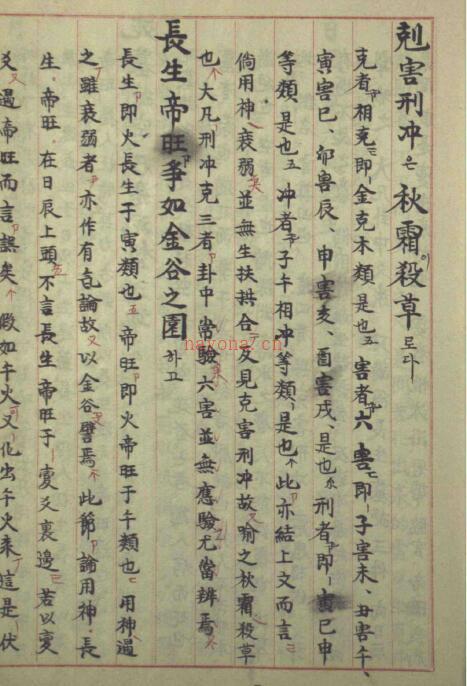 剋害刑冲은 秋霜殺草로다
克者相克即金克木類是也害者六害即子害未、丑害午、
寅害巳、卯害辰、申害亥、酉害戌、是也刑者即寅巳申
等類是也冲者子午相冲等類是也此亦結上文而言
倘用神衰弱並無生扶拱合又見克害刑冲故喻之秋霜殺草
也大凡刑冲克三者卦中當驗六害並無應驗尤當辨焉
長生帝旺爭如金谷之園하고
長生即火長生于寅類也帝旺即火帝旺于午類也用神遇
之雖衰弱者亦作有氣論故又以金谷譬焉此節論用神長
生帝旺在日辰上頭不言長生帝旺于變爻裏邊若以變
爻遇帝旺而言誤矣假如午火又化出午火來這是伏
nayona.cn